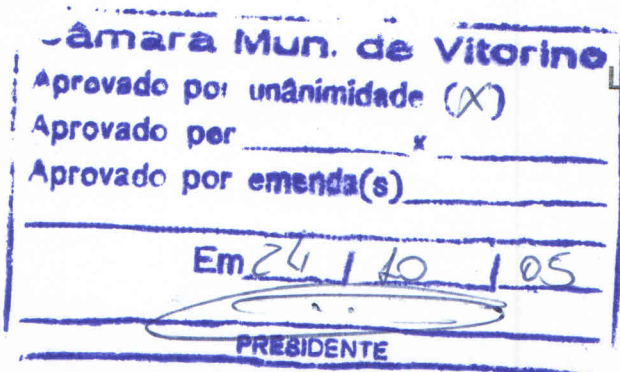 Câmara Mun. de Vitorino
Aprovado por unânimidade (X)
Aprovado por ______ x ______
Aprovado por emenda(s)______
Em 24 / 10 / 05
PRESIDENTE